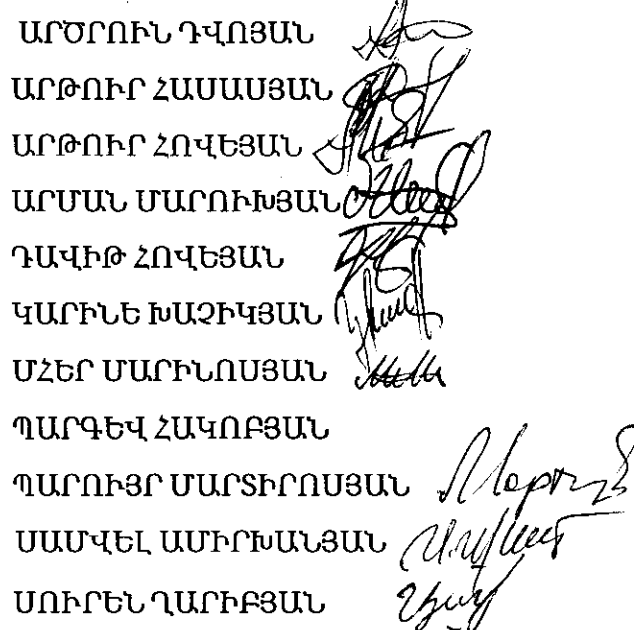 ԱՐԾՐՈՒՆ ԴՎՈՅԱՆ
ԱՐԹՈՒՐ ՀԱՍԱՍՅԱՆ
ԱՐԹՈՒՐ ՀՈՎԵՅԱՆ
ԱՐՄԱՆ ՄԱՐՈՒԽՅԱՆ
ԴԱՎԻԹ ՀՈՎԵՅԱՆ
ԿԱՐԻՆԵ ԽԱՉԻԿՅԱՆ
ՄՀԵՐ ՄԱՐԻՆՈՍՅԱՆ
ՊԱՐԳԵՎ ՀԱԿՈԲՅԱՆ
ՊԱՐՈՒՅՐ ՄԱՐՏԻՐՈՍՅԱՆ
ՍԱՄՎԵԼ ԱՄԻՐԽԱՆՅԱՆ
ՍՈՒՐԵՆ ՂԱՐԻԲՅԱՆ